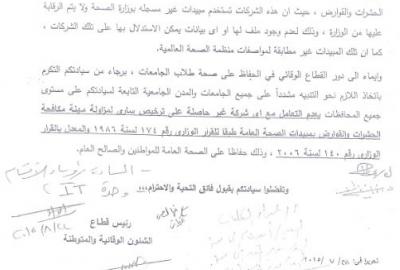 الحشرات والقوارض ، حيث ان هذه الشركات تستخدم مبيدات غير مسجله بوزارة الصحة ولا يتم الرقابة
عليها من الوزارة ، وذلك لعدم وجود ملف لها او اى بيانات يمكن الاستدلال بها على تلك الشركات ،
كما ان تلك المبيدات غير مطابقة لمواصفات منظمة الصحة العالمية.
وإيماء الى دور القطاع الوقائي في الحفاظ على صحة طلاب الجامعات ، برجاء من سيادتكم التكرم
باتخاذ اللازم نحو التنبيه مشدداً على جميع الجامعات والمدن الجامعية التابعة لسيادتكم على مستوى
جميع المحافظات بعدم التعامل مع اى شركة غير حاصلة على ترخيص سارى لمزاولة مهنة مكافحة
الحشرات والقوارض بمبيدات الصحة العامة طبقا للقرار الوزارى رقم ١٧٤ لسنة ١٩٨٦ والمعدل بالقرار
الوزارى رقم ١٤٠ لسنة ٢٠٠٦ ، وذلك حفاظا على الصحة العامة للمواطنين والصالح العام.
وتفضلوا سيادتكم بقبول فائق التحية والاحترام،،،
السادة رؤساء الأقسام
وحدة IT
رئيس قطاع
الشئون الوقائية والمتوطنة